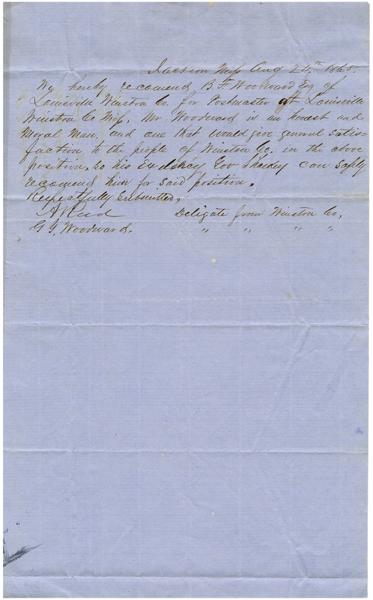 Jackson Miss Aug 24th 1865.
We hereby recomend B. F. Woodward Esq of
Louisville Winston Co. for Postmaster at Louisville
Winston Co Miss. Mr Woodward is an honest and
Moral Man, and one that would give general satis-
faction to the people of Winston Co. in the above
position, so his Excellency Gov Sharkey can safely
recomend him for said position.
Respectfully Submitted,
Delegate from Winston Co,
G. J. Woodward. " " " "